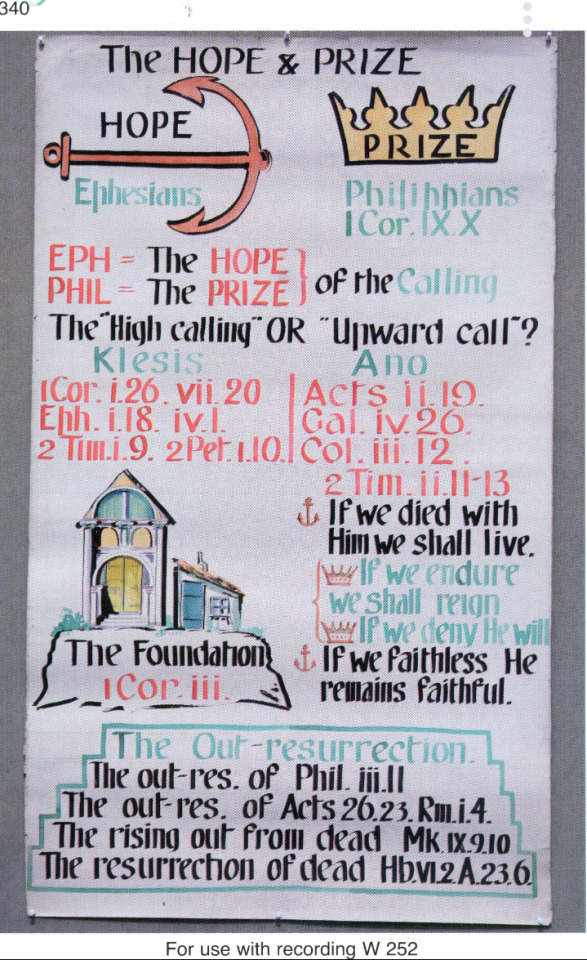 340
The HOPE & PRIZE
HOPE
PRIZE
Ephesians
Philippians
1 Cor. IX.X
EPH = The HOPE
PHIL = The PRIZE
of the Calling
The "High calling" OR "Upward call"?
Klesis
Ano
1 Cor. i.26. vii.20
Acts ii.19.
Eph. i.18. iv.1.
Gal. iv.26.
2 Tim.i.9. 2 Pet.1.10.
Col. iii. 12.
2 Tim. ii.11-13
If we died with
Him we shall live.
If we endure
we shall reign
If we deny He will
If we faithless He
remains faithful.
The Foundation
1 Cor. iii.
The Out-resurrection.
The out-res. of Phil. iii.11
The out-res. of Acts 26.23. Rm.i.4.
The rising out from dead Mk.IX.9.10
The resurrection of dead Hb.VI.2 A.23.6.
For use with recording W 252